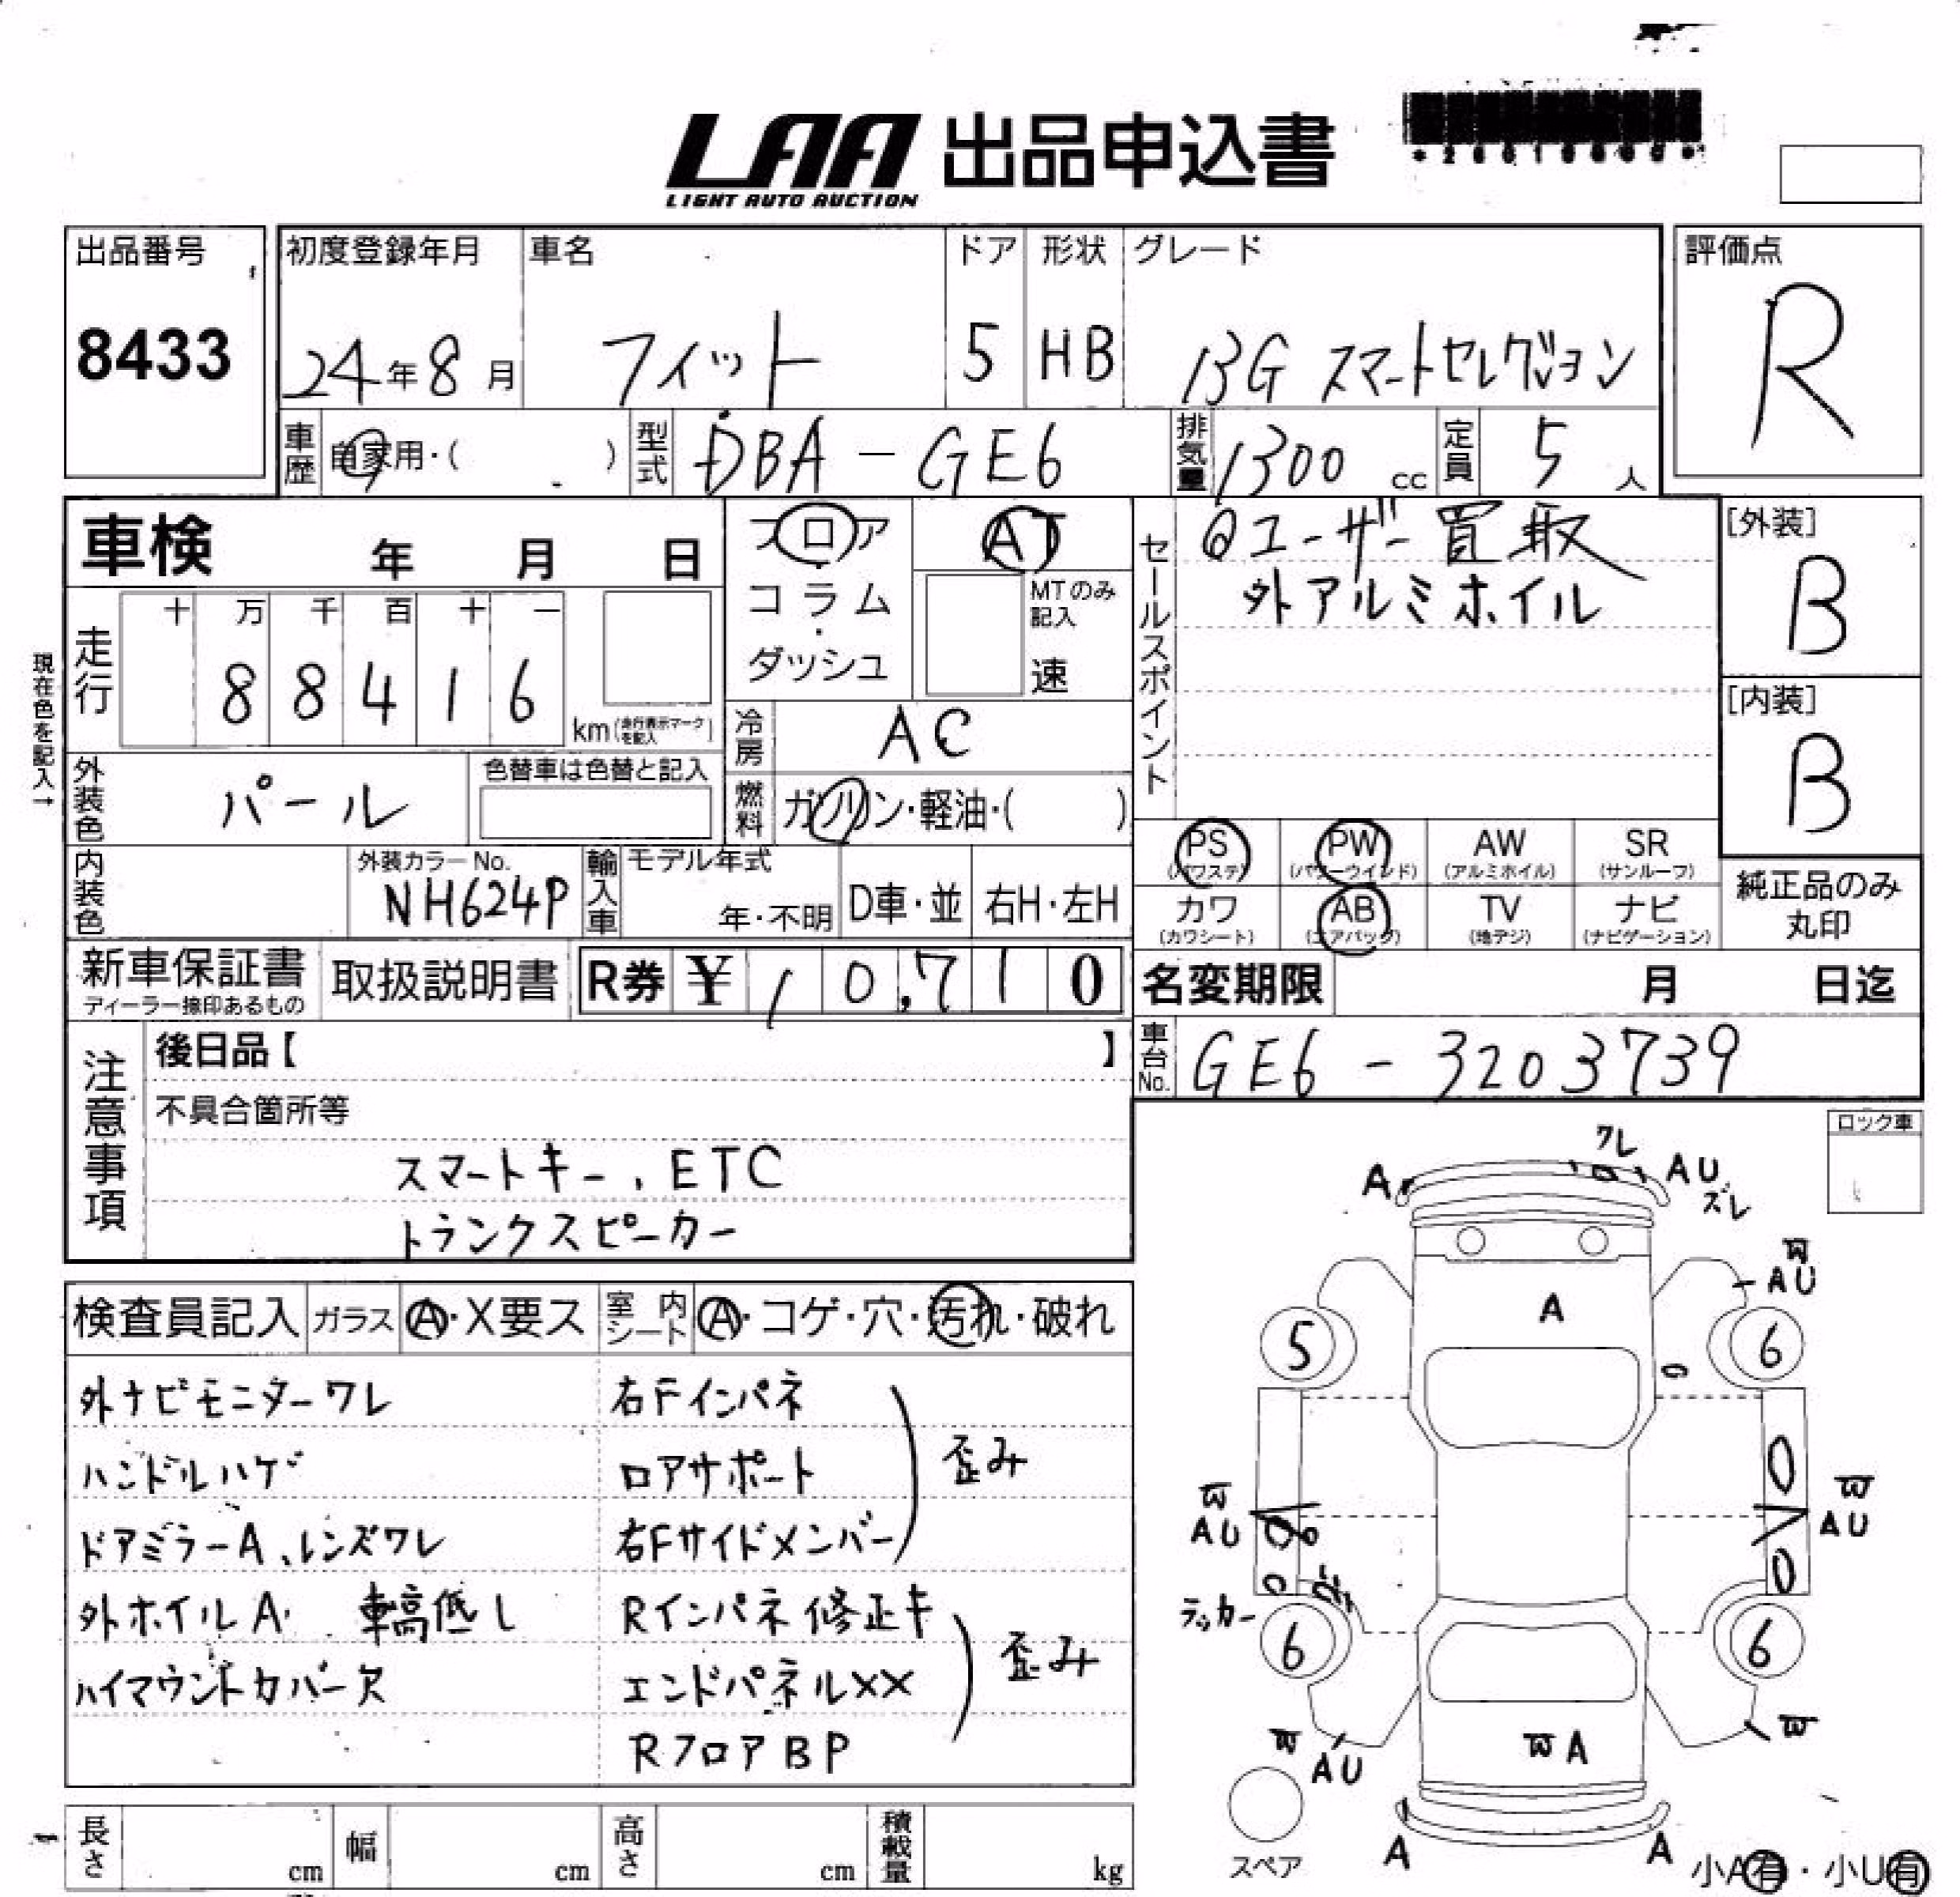 LAA 出品申込書
LIGHT AUTO AUCTION
出品番号 初度登録年月 車名 ドア 形状 グレード 評価点
8433 24年8月 フィット 5 HB 13G スマートセレクション R
車歴 自家用・( ) 型式 DBA-GE6 排気量 1300 cc 定員 5 人
車検 年 月 日 フロア AT セールスポイント ユーザー買取 [外装]
コラム・ MTのみ記入 外アルミホイル B
走行 十 万 千 百 十 一 ダッシュ 速
8 8 4 1 6 km (走行表示マークを記入) [内装]
現在色を記入→
冷房 AC B
外装色 パール 色替車は色替と記入 燃料 ガソリン・軽油・( )
PS (パワステ) PW (パワーウインド) AW (アルミホイル) SR (サンルーフ)
内装色 外装カラーNo. NH624P 輸入車 モデル年式 年・不明 D車・並 右H・左H
カワ (カワシート) AB (エアバッグ) TV (地デジ) ナビ (ナビゲーション) 純正品のみ丸印
新車保証書 ディーラー捺印あるもの 取扱説明書 R券 ¥ 10,710 名変期限 月 日迄
注意事項 後日品【 】 車台No. GE6-3203739
不具合箇所等
ロック車
スマートキー、ETC
トランクスピーカー
ワレ
A AU
ズレ
W
AU
A
5 6
G
検査員記入 ガラス A・X要ス 室内シート A・コゲ・穴・汚れ・破れ
外ナビモニターワレ 右Fインパネ
ハンドルハゲ ロアサポート 歪み
ドアミラーA、レンズワレ 右Fサイドメンバー
外ホイルA 車高低し Rインパネ修正キ
ハイマウントカバー欠 エンドパネルXX 歪み
RフロアBP
W W
AU AU
タッカー
6 6
W W
AU
W A
スペア
A A
小A有・小U有
長さ cm 幅 cm 高さ cm 積載量 kg